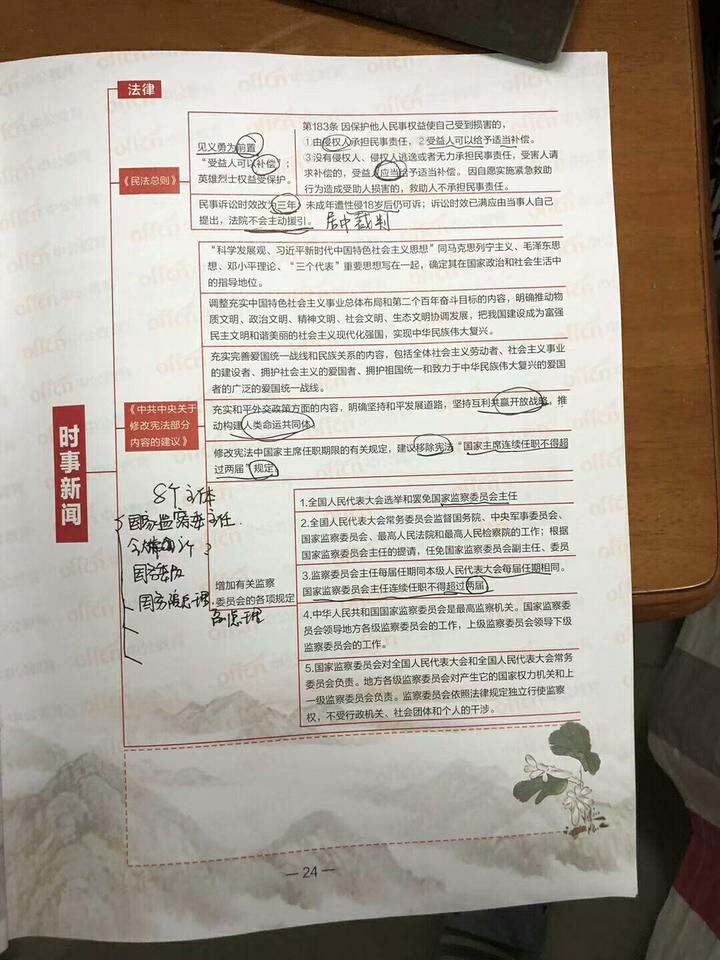 法律
时事新闻
《民法总则》
见义勇为前置
“受益人可以补偿”；
英雄烈士权益受保护。
第183条 因保护他人民事权益使自己受到损害的，
①由侵权人承担民事责任，2受益人可以给予适当补偿。
3没有侵权人、侵权人逃逸或者无力承担民事责任，受害人请
求补偿的，受益人应当给予适当补偿。 因自愿实施紧急救助
行为造成受助人损害的，救助人不承担民事责任。
民事诉讼时效改为三年，未成年遭性侵18岁后仍可诉；诉讼时效已满应由当事人自己
提出，法院不会主动援引。 居中裁判
《中共中央关于
修改宪法部分
内容的建议》
“科学发展观、习近平新时代中国特色社会主义思想”同马克思列宁主义、毛泽东思
想、邓小平理论、“三个代表”重要思想写在一起，确定其在国家政治和社会生活中
的指导地位。
调整充实中国特色社会主义事业总体布局和第二个百年奋斗目标的内容，明确推动物
质文明、政治文明、精神文明、社会文明、生态文明协调发展，把我国建设成为富强
民主文明和谐美丽的社会主义现代化强国，实现中华民族伟大复兴。
充实完善爱国统一战线和民族关系的内容，包括全体社会主义劳动者、社会主义事业
的建设者、拥护社会主义的爱国者、拥护祖国统一和致力于中华民族伟大复兴的爱国者
的广泛的爱国统一战线。
充实和平外交政策方面的内容，明确坚持和平发展道路，坚持互利共赢开放战略，推
动构建人类命运共同体。
修改宪法中国家主席任职期限的有关规定，建议移除宪法“国家主席连续任职不得超
过两届”规定。
8个主体
国家监察委主任
国务院总理.
副总理
增加有关监察
委员会的各项规定
1.全国人民代表大会选举和罢免国家监察委员会主任
2.全国人民代表大会常务委员会监督国务院、中央军事委员会、
国家监察委员会、最高人民法院和最高人民检察院的工作；根据
国家监察委员会主任的提请，任免国家监察委员会副主任、委员
3.监察委员会主任每届任期同本级人民代表大会每届任期相同。
国家监察委员会主任连续任职不得超过两届。
4.中华人民共和国国家监察委员会是最高监察机关。国家监察委
员会领导地方各级监察委员会的工作，上级监察委员会领导下级
监察委员会的工作。
5.国家监察委员会对全国人民代表大会和全国人民代表大会常务
委员会负责。地方各级监察委员会对产生它的国家权力机关和上
一级监察委员会负责。监察委员会依照法律规定独立行使监察
权，不受行政机关、社会团体和个人的干涉。
— 24 —